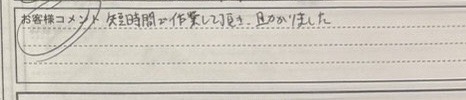 お客様コメント 短時間で作業して頂き、助かりました